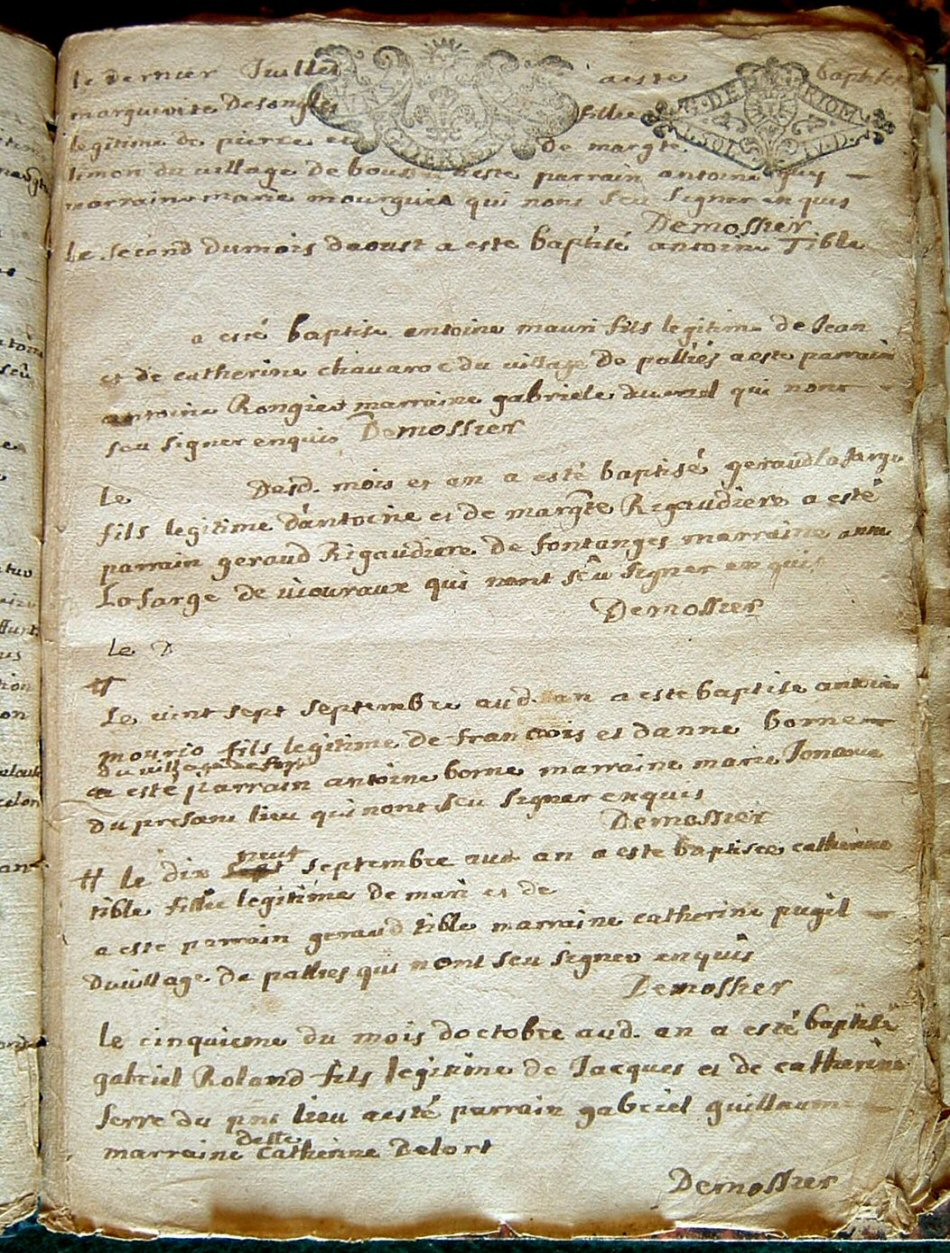 le dernier Juillet a este baptisee
marguerite Desangles fille
legitime de pierre et de margte
limon du village de bous a este parrain antoine
marraine marie mourguies qui nont seu signer enquis
Demossier
Le second du mois daoust a este baptisé antoine Tible
a esté baptise antoine mauri fils legitime de Jean
et de catherine chavaroc du village de pallies a este parrain
antoine Rongier marraine gabriele duverd qui nont
seu signer enquis Demossier
Le Desd. mois et an a esté baptisé geraud Lafarge
fils legitime dantoine et de margte Rigaudiere a esté
parrain geraud Rigaudiere de fontanges marraine anne
Lafarge de viouraux qui nont sêu signer enquis
Demossier
Le D
#
Le vint sept septembre aud. an a este baptise antoine
mourio fils legitime de francois et danne borne
du village de
a esté parrain antoine borne marraine marie Joncoux
du presant lieu qui nont seu signer enquis
Demossier
# Le dix neuf septembre aud an a este baptisee catherine
tible fille legitime de mari et de
a este parrain geraud tible marraine catherine pugil
du village de pallies qui nont seu signer enquis
Demossier
le cinquieme du mois doctobre aud. an a esté baptise
gabriel Roland fils legitime de Jacques et de catherine
serre du pnt lieu a esté parrain gabriel guillaume
marraine delle Catherine Delort
Demossier